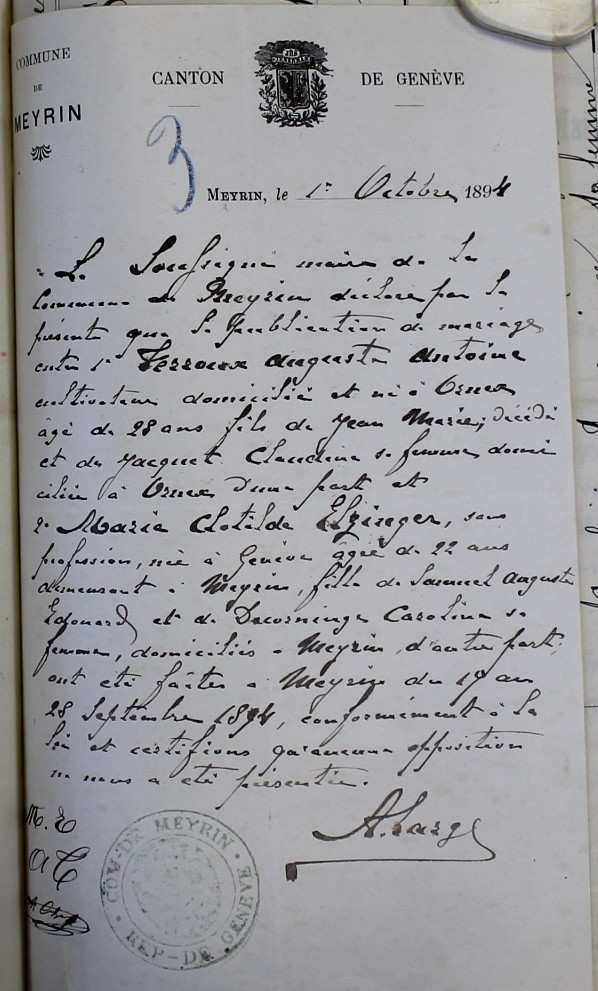 COMMUNE
DE
MEYRIN
CANTON
DE GENÈVE
3
MEYRIN, le 1er Octobre 1894
Le Soussigné maire de la
Commune de Meyrin déclare par la
présente que la publication de mariage
entre 1° Terroux Auguste Antoine
cultivateur domicilié et né à Ornex
âgé de 28 ans fils de Jean Marie, décédé
et de Jacquet Claudine sa femme domi
ciliée à Ornex d'une part et
2° Marie Clotilde Elzinger, sans
profession, née à Genève âgée de 22 ans
demeurant à Meyrin, fille de Samuel Auguste
Edouard et de Caroline sa
femme, domiciliés à Meyrin, d'autre part,
ont été faites à Meyrin du 19 au
28 Septembre 1894, conformément à la
loi et certifions qu'aucune opposition
ne nous a été présentée.
M. E
A T
COM. DE MEYRIN
REP. DE GENÈVE